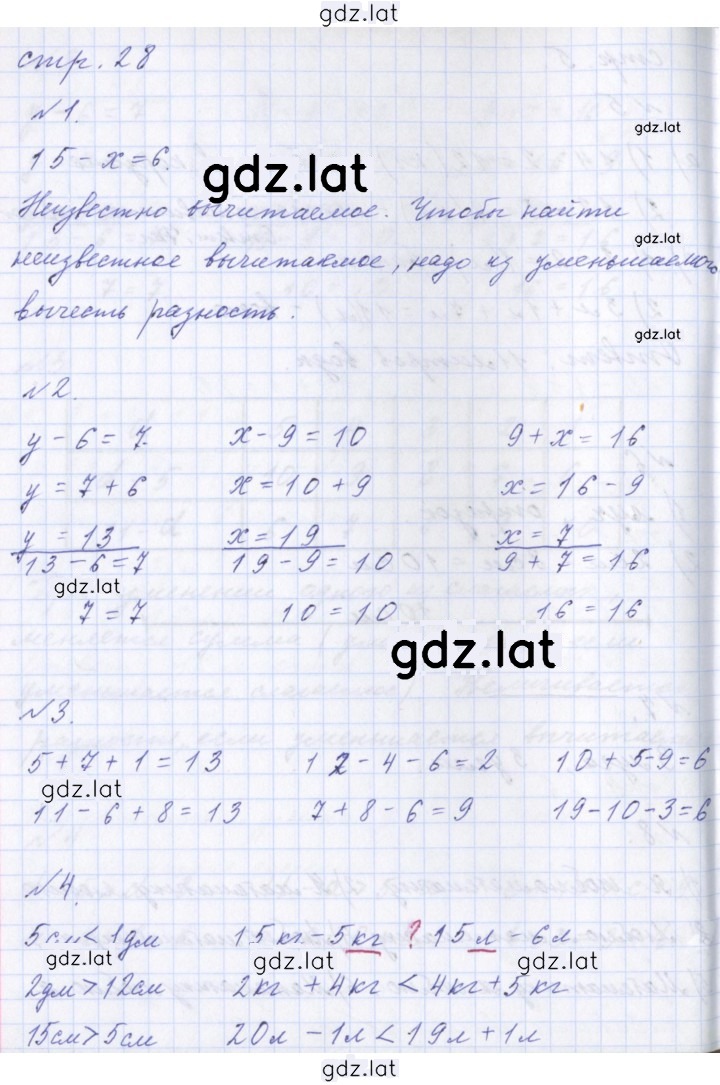 gdz.lat
стр. 28
№1.
gdz.lat
15 - x = 6.
gdz.lat
Неизвестно вычитаемое. Чтобы найти
gdz.lat
неизвестное вычитаемое, надо из уменьшаемого
вычесть разность.
gdz.lat
№2.
y - 6 = 7. x - 9 = 10 9 + x = 16
y = 7 + 6 x = 10 + 9 x = 16 - 9
y = 13 x = 19 x = 7
13 - 6 = 7 19 - 9 = 10 9 + 7 = 16
gdz.lat
7 = 7 10 = 10 16 = 16
gdz.lat
№3.
5 + 7 + 1 = 13 12 - 4 - 6 = 2 10 + 5 - 9 = 6
gdz.lat
11 - 6 + 8 = 13 7 + 8 - 6 = 9 19 - 10 - 3 = 6
№4.
5см < 1дм 15кг - 5кг ? 15л - 6л
gdz.lat gdz.lat gdz.lat
2дм > 12см 2кг + 4кг < 4кг + 5кг
15см > 5см 20л - 1л < 19л + 1л
gdz.lat